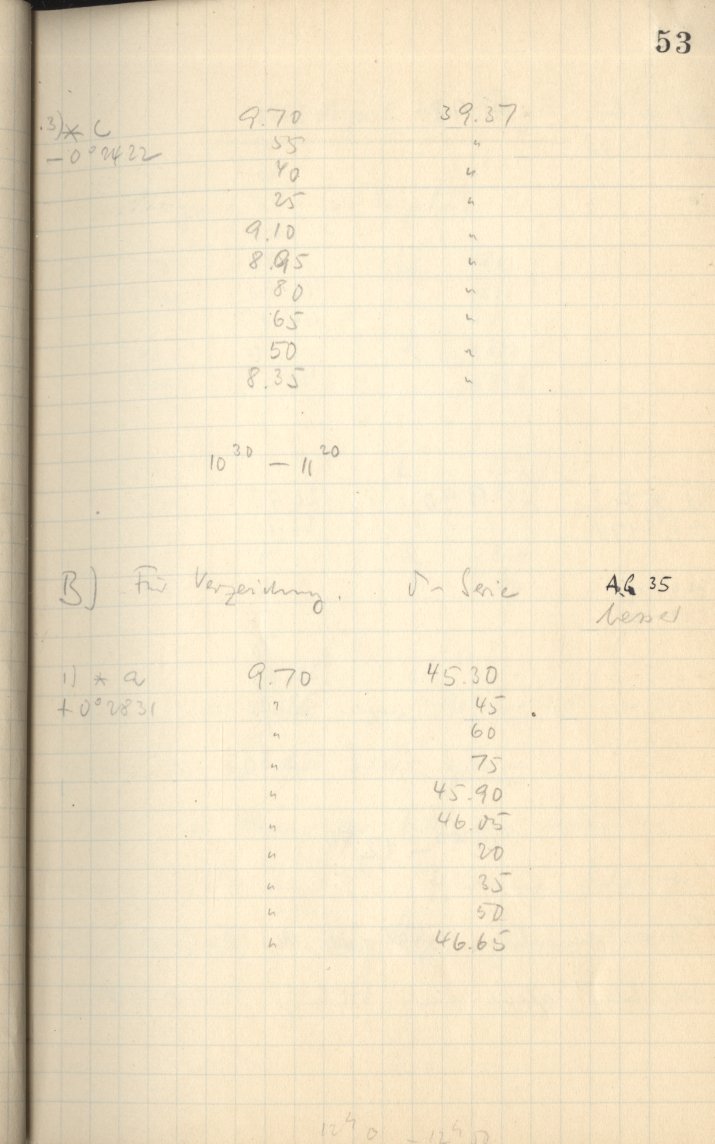 53
3) * c 9.70 39.37
−0°2422 55 "
40 "
25 "
9.10 "
8.95 "
80 "
65 "
50 "
8.35 "
10³⁰ — 11²⁰
B) Für Verzeichnung. δ-Serie A.G. 35
besser
1) * a 9.70 45.30
+0°2831 " 45
" 60
" 75
" 45.90
" 46.05
" 20
" 35
" 50
" 46.65